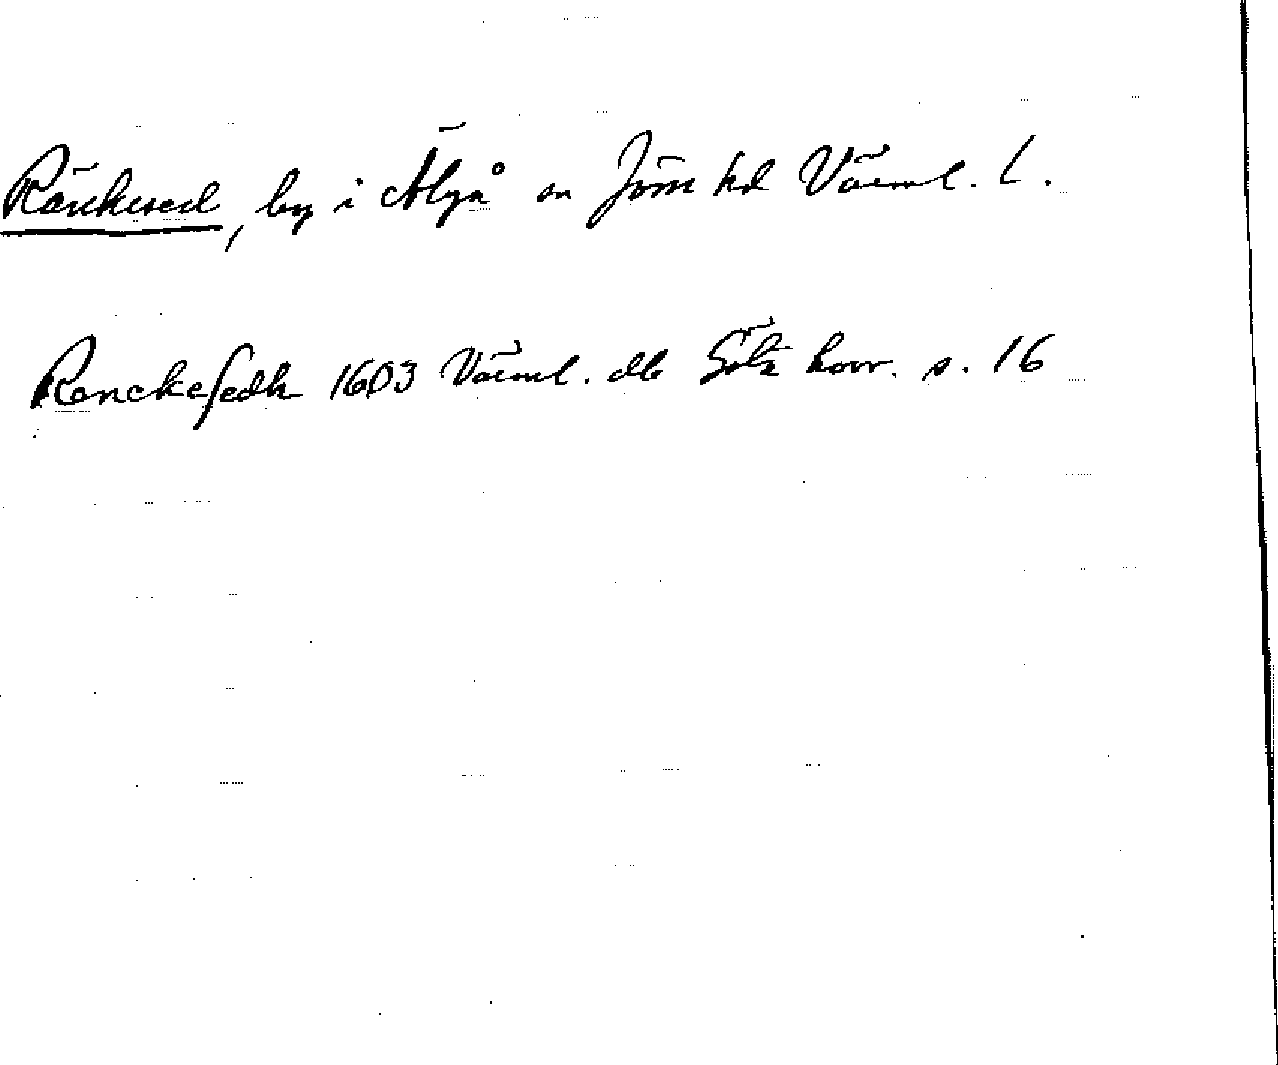 Ränkesed, by i Älgå sn Jösse hd Värml. l.
Renckesedh 1603 Värml. db Sölk korr. s. 16